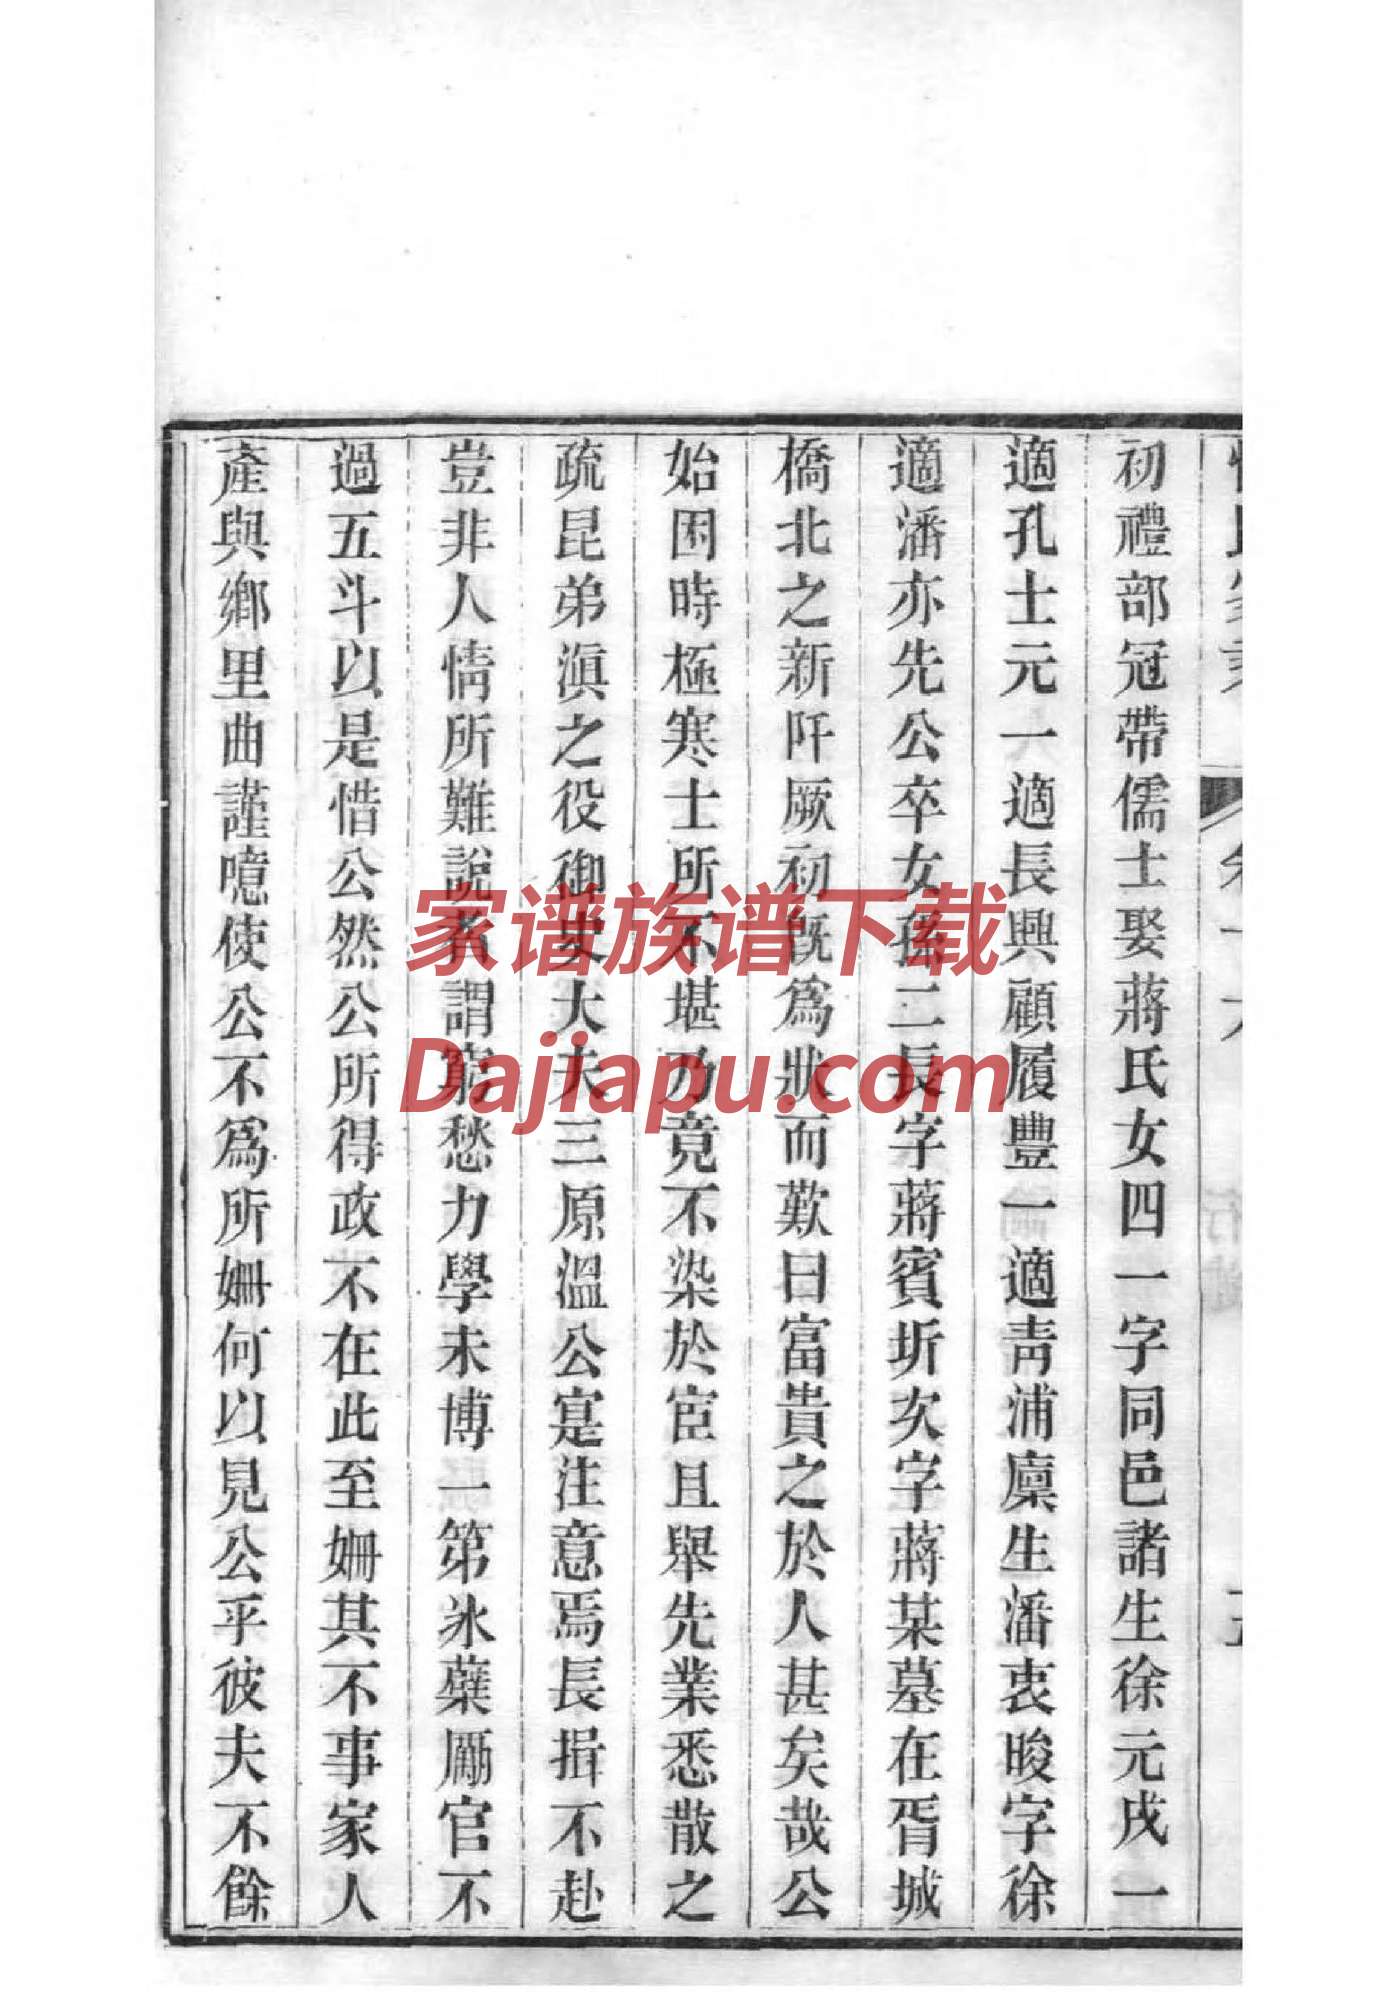 初禮部冠帶儒士娶蔣氏女四一字同邑諸生徐元成一
適孔士元一適長興顧履豐一適青浦廩生潘衷晙字徐
適潘亦先公卒女孫二長字蔣賓圻次字蔣某墓在胥城
橋北之新阡厥初既爲狀而歎曰富貴之於人甚矣哉公
始困時極寒士所不堪乃竟不染於宦且舉先業悉散之
疏昆弟滇之役御史大夫三原溫公寔注意焉長揖不赴
豈非人情所難說者謂窮愁力學未博一第氷蘗勵官不
過五斗以是惜公然公所得政不在此至姍其不事家人
產與鄉里曲謹噫使公不爲所姍何以見公乎彼夫不餘
家谱族谱下载
Dajiapu.com